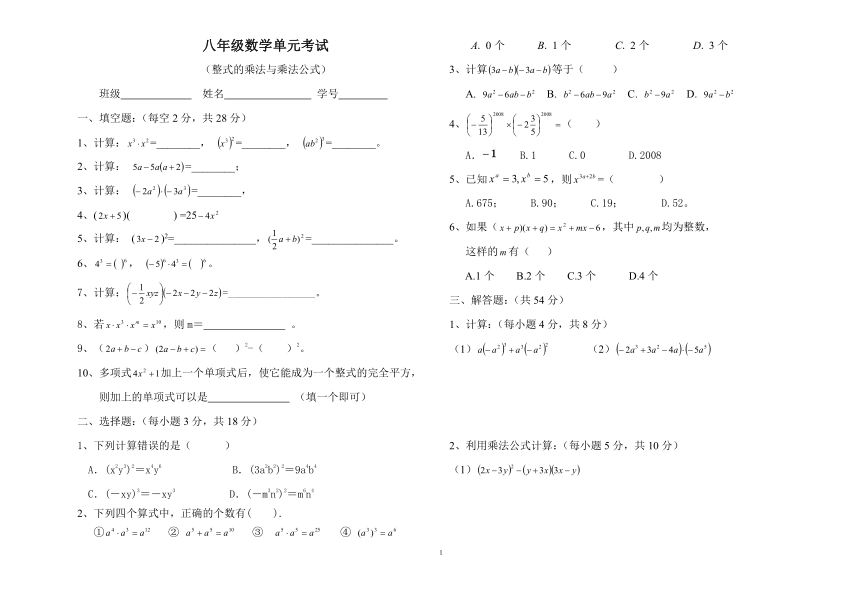 八年级数学单元考试
（整式的乘法与乘法公式）
班级 姓名 学号
一、填空题:（每空 2 分，共 28 分）
1、计算：x³·x²=________， (x³)²=________， (ab²)³=________。
2、计算： 5a−5a(a+2)=________；
3、计算： (−2a²)·(−3a³)=________，
4、( 2x+5 )( ) =25−4x²
5、计算：( 3x−2 )²=________________，(1/2 a+b)²=________________。
6、4³=( )⁶， (−5)⁶·4³=( )⁶。
7、计算：(−1/2 xyz)(−2x−2y−2z)=__________________。
8、若 x·x³·xᵐ=x¹⁰，则 m＝ 。
9、（2a+b−c）(2a−b+c)=（ ）²−（ ）²。
10、多项式 4x²+1 加上一个单项式后，使它能成为一个整式的完全平方，
则加上的单项式可以是 （填一个即可）
二、选择题:（每小题 3 分，共 18 分）
1、下列计算错误的是（ ）
A.（x²y³)²＝x⁴y⁶ B.（3a²b²)²＝9a⁴b⁴
C.（－xy)³＝－xy³ D.（－m³n²)²＝m⁶n⁴
2、下列四个算式中，正确的个数有( ).
①a⁴·a³=a¹² ② a⁵+a⁵=a¹⁰ ③ a⁵·a⁵=a²⁵ ④ (a³)³=a⁶
A. 0 个 B. 1 个 C. 2 个 D. 3 个
3、计算(3a−b)(−3a−b)等于（ ）
A. 9a²−6ab−b² B. b²−6ab−9a² C. b²−9a² D. 9a²−b²
4、(−5/13)²⁰⁰⁸×(−2 3/5)²⁰⁰⁸=（ ）
A. −1 B.1 C.0 D.2008
5、已知 xᵃ=3, xᵇ=5，则 x³ᵃ⁺²ᵇ=（ ）
A.675； B.90； C.19； D.52。
6、如果（x+p)(x+q)=x²+mx−6，其中 p,q,m 均为整数，
这样的 m 有（ ）
A.1 个 B.2 个 C.3 个 D.4 个
三、解答题:（共 54 分）
1、计算：（每小题 4 分，共 8 分）
（1）a(−a²)³+a³(−a²)² （2）(−2a³+3a²−4a)·(−5a⁵)
2、利用乘法公式计算：（每小题 5 分，共 10 分）
（1）(2x−3y)²−(y+3x)(3x−y)
1